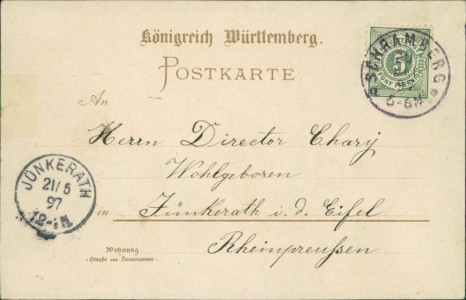 Königreich Württemberg.
POSTKARTE
5
FÜNF PFENNIG
SCHRAMBERG
5-6N
An
Herrn Director Chary
Wohlgeboren
in Jünkerath i. d. Eifel
Rheinpreussen
JÜNKERATH
21/5
97
12-1N
Wohnung
(Strasse und Hausnummer)